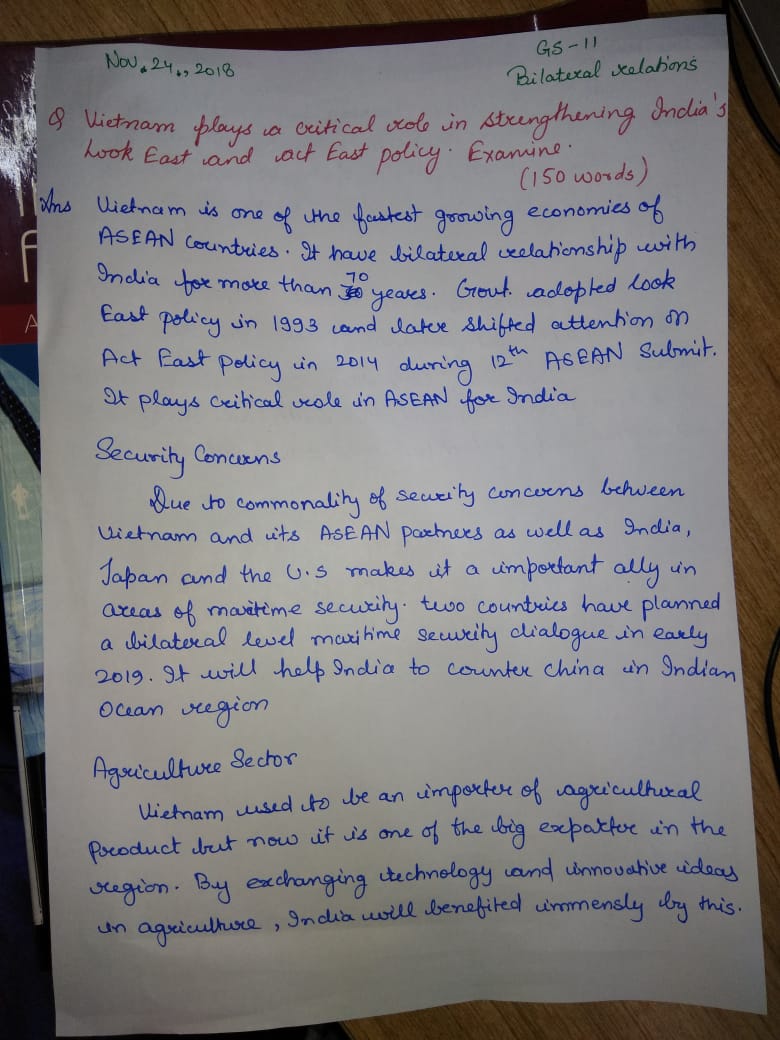 Nov. 24., 2018
GS-11
Bilateral relations
Q Vietnam plays a critical role in strengthening India's
Look East and act East policy. Examine.
(150 words)
Ans Vietnam is one of the fastest growing economies of
ASEAN countries. It have bilateral relationship with
India for more than 70 years. Govt. adopted look
East policy in 1993 and later shifted attention on
Act East Policy in 2014 during 12th ASEAN Submit.
It plays critical role in ASEAN for India
Security Concerns
Due to commonality of security concerns between
Vietnam and its ASEAN partners as well as India,
Japan and the U.S makes it a important ally in
areas of maritime security. two countries have planned
a bilateral level maritime security dialogue in early
2019. It will help India to counter China in Indian
Ocean region
Agriculture Sector
Vietnam used to be an importer of agricultural
product but now it is one of the big expoxter in the
region. By exchanging technology and innovative ideas
in agriculture, India will benefited immensly by this.